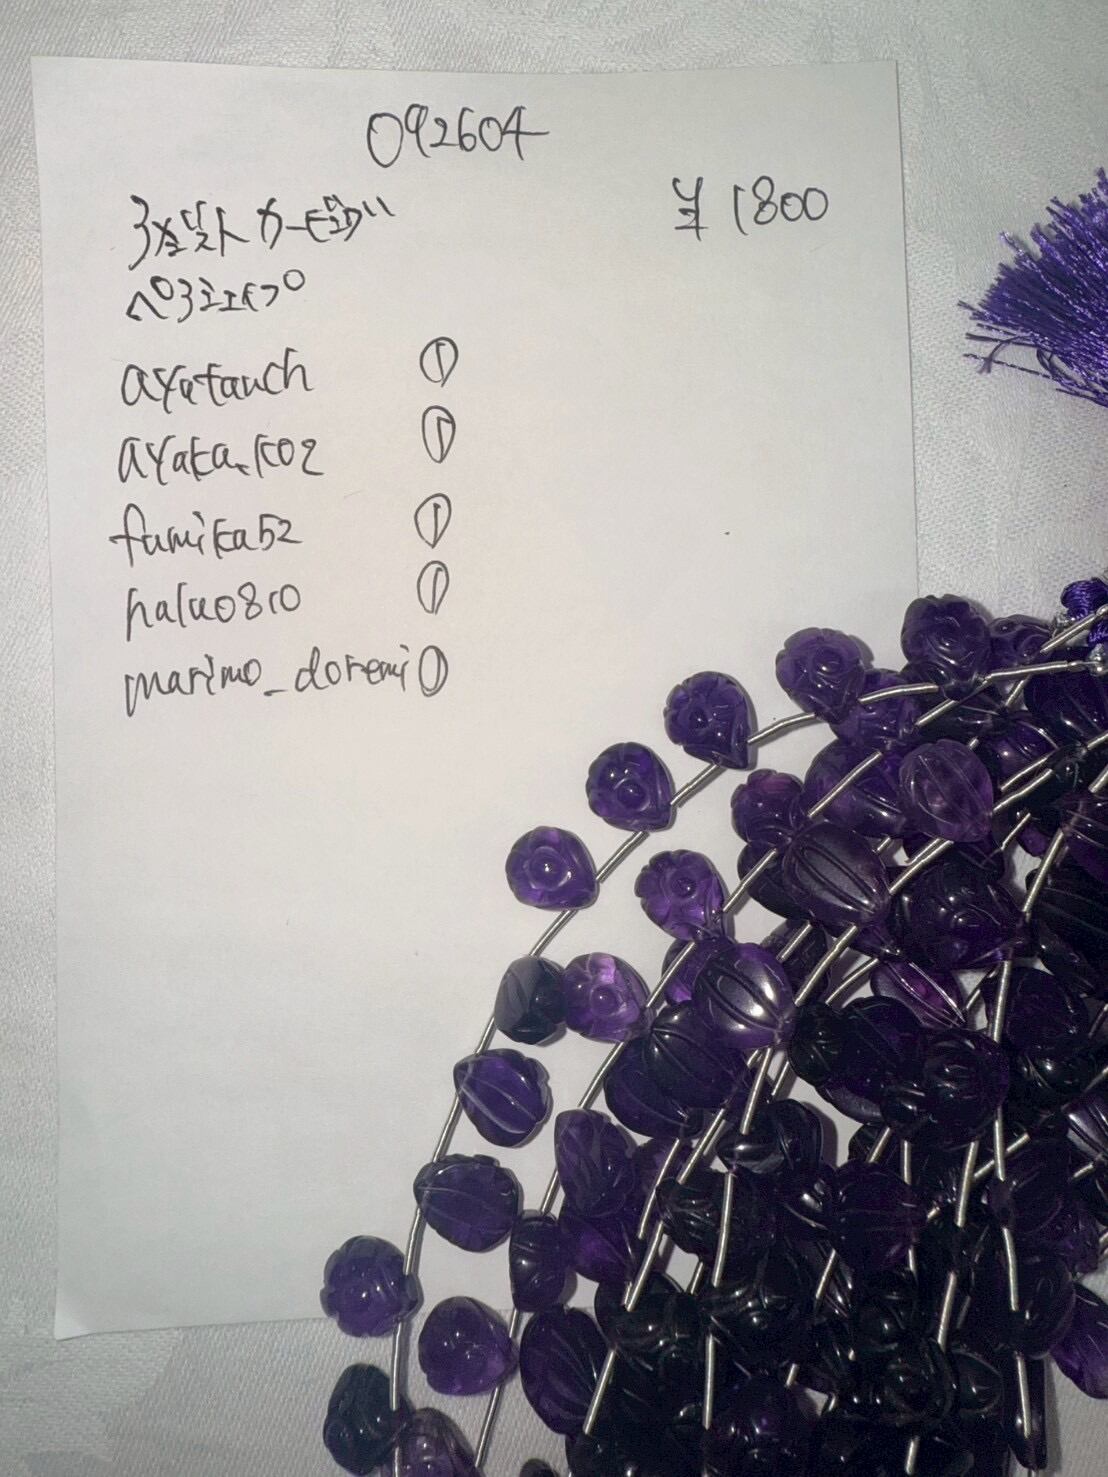 092604
アメジスト カービング
¥1800
ペアシェイプ
ayatanch ①
ayaka.k02 ①
fumika52 ①
haluo810 ①
marimo_doremi ①